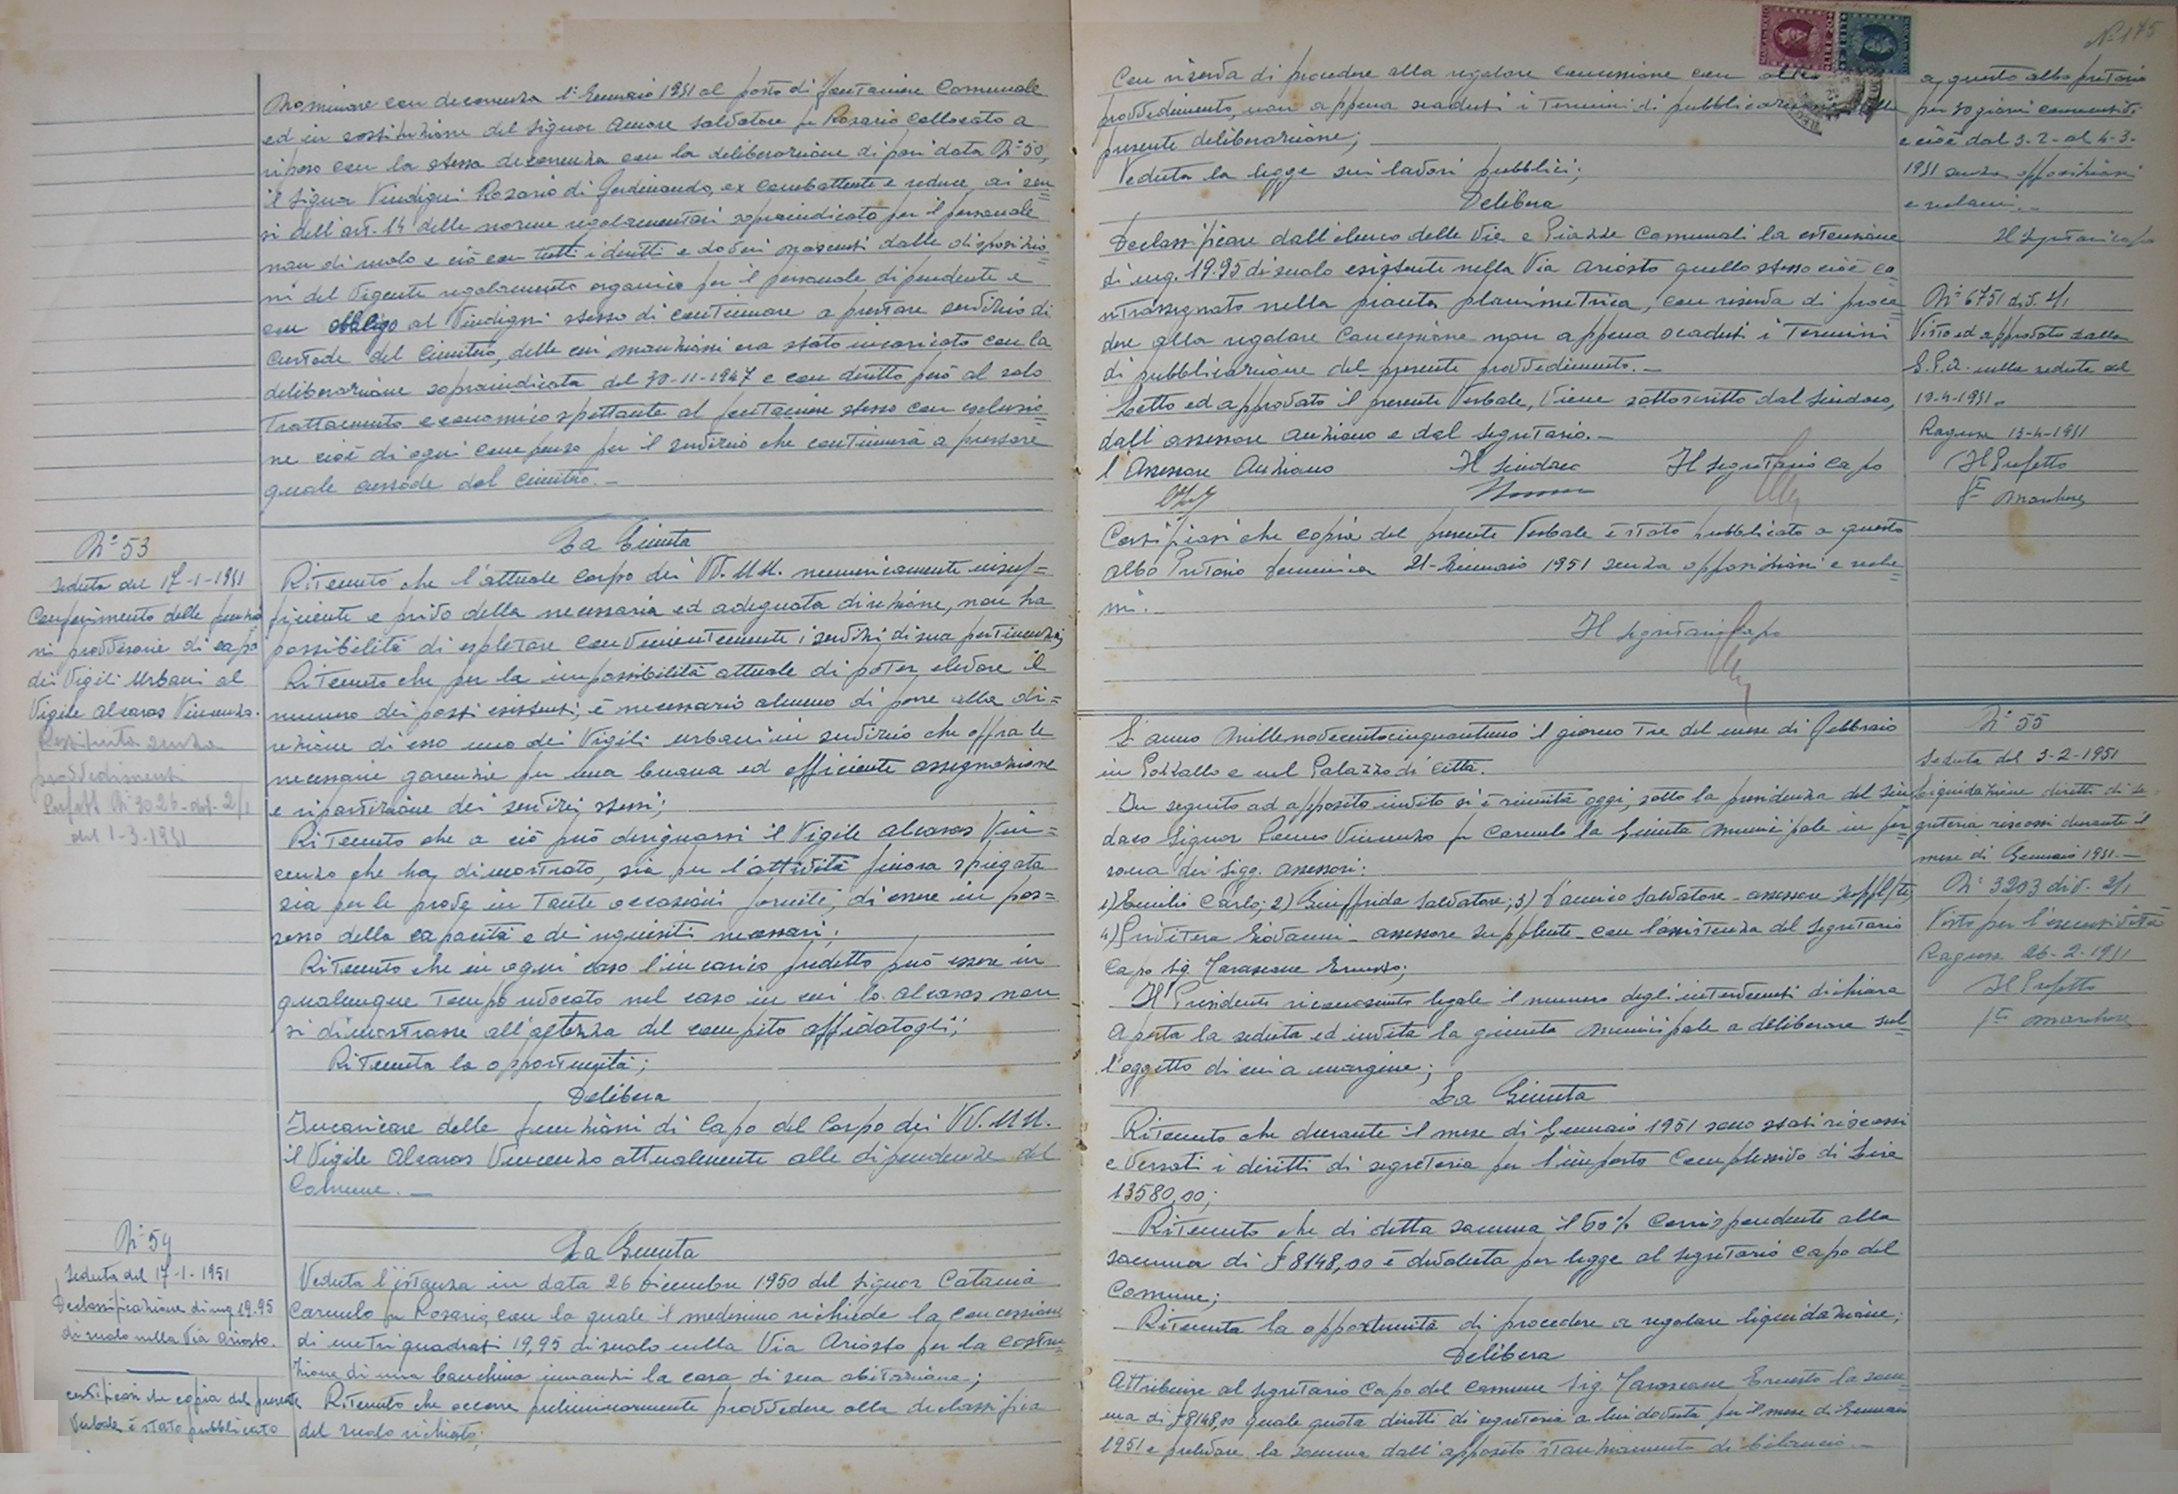 Nominare con decorrenza 1° Gennaio 1951 al posto di fontaniere Comunale
ed in sostituzione del Signor Amore Salvatore fu Rosario collocato a
riposo con la stessa decorrenza con la deliberazione di pari data N° 50,
il Signor Vindigni Rosario di Ferdinando, ex combattente e reduce, ai sen=
si dell'art. 14 delle norme regolamentari sopraindicate per il personale
non di ruolo e ciò con tutti i diritti e doveri nascenti dalle disposizio=
ni del vigente regolamento organico per il personale dipendente e
con obbligo al Vindigni stesso di continuare a prestare servizio di
custode del Cimitero, delle cui mansioni era stato incaricato con la
deliberazione sopraindicata del 30-11-1947 e con diritto però al solo
trattamento economico spettante al fontaniere stesso con esclusio=
ne cioè di ogni compenso per il servizio che continuerà a prestare
quale custode del Cimitero. -
N° 53
Seduta del 17-1-1951
Conferimento delle funzio
ni provvisorie di capo
dei Vigili Urbani al
Vigile Alcaras Vincenzo.
Restituita senza
provvedimenti
Prefett. N° 3026 - div. 2/1
del 1-3-1951
La Giunta
Ritenuto che l'attuale Corpo dei VV. UU. numericamente insuf=
ficiente e privo della necessaria ed adeguata direzione, non ha
possibilità di espletare convenientemente i servizi di sua pertinenza;
Ritenuto che per la impossibilità attuale di poter elevare il
numero dei posti esistenti, è necessario almeno di porre alla di=
rezione di esso uno dei Vigili urbani in servizio che offra le
necessarie garenzie per una buona ed efficiente assegnazione
e ripartizione dei servizi stessi;
Ritenuto che a ciò può designarsi il Vigile Alcaras Vin=
cenzo che ha dimostrato, sia per l'attività finora spiegata
sia per le prove in tante occasioni fornite, di essere in pos=
sesso della capacità e dei requisiti necessari;
Ritenuto che in ogni caso l'incarico predetto può essere in
qualunque tempo revocato nel caso in cui lo Alcaras non
si dimostrasse all'altezza del compito affidatogli;
Ritenuta la opportunità;
Delibera
Incaricare delle funzioni di Capo del Corpo dei VV. UU.
il Vigile Alcaras Vincenzo attualmente alle dipendenze del
Comune. -
N° 54
Seduta del 17-1-1951
Declassificazione di mq 19.95
di suolo nella Via Ariosto.
Certificasi che copia del presente
Verbale è stato pubblicato
La Giunta
Veduta l'istanza in data 26 Dicembre 1950 del Signor Catania
Carmelo fu Rosario, con la quale il medesimo richiede la concessione
di metri quadrati 19,95 di suolo nella Via Ariosto per la costru=
zione di una banchina innanzi la casa di sua abitazione;
Ritenuto che occorre preliminarmente provvedere alla declassifica
del suolo richiesto;
N° 175
Con riserva di procedere alla regolare concessione con altro
provvedimento, non appena scaduti i termini di pubblicazione della
presente deliberazione;
Veduta la legge sui lavori pubblici;
Delibera
Declassificare dall'elenco delle Vie e Piazze Comunali la estensione
di mq. 19.95 di suolo esistente nella Via Ariosto quello stesso cioè co
ntrassegnato nella pianta planimetrica, con riserva di proce
dere alla regolare Concessione non appena scaduti i termini
di pubblicazione del presente provvedimento. -
Letto ed approvato il presente Verbale, viene sottoscritto dal Sindaco,
dall'assessore anziano e dal Segretario. -
l'Assessore Anziano Il Sindaco Il Segretario Capo
Certificasi che copia del presente Verbale è stato pubblicato a questo
albo Pretorio domenica 21-Gennaio 1951 senza opposizioni e recla=
mi. -
Il Segretario Capo
a questo albo pretorio
per 30 giorni consecutivi
e cioè dal 3-2- al 4-3-
1951 senza opposizioni
e reclami. -
Il Segretario Capo
N° 6751 div. 2/1
Visto ed approvato dalla
G.P.A. nella seduta del
Ragusa 13-4-1951
Il Prefetto
L'anno Millenovecentocinquantuno il giorno Tre del mese di Febbraio
in Pozzallo e nel Palazzo di Città.
In seguito ad apposito invito si è riunita oggi, sotto la presidenza del Sin
daco Signor Vincenzo fu Carmelo la Giunta Municipale in per=
sona dei Sigg. Assessori:
1) Emilio Carlo; 2) Giuffrida Salvatore; 3) D'Amico Salvatore - assessore Suppl/te;
4) Privitera Giovanni - assessore Supplente - con l'assistenza del Segretario
Capo Sig. Tarascone Ernesto;
Il Presidente riconosciuto legale il numero degli intervenuti dichiara
aperta la seduta ed invita la giunta Municipale a deliberare sul=
l'oggetto di cui a margine;
La Giunta
Ritenuto che durante il mese di Gennaio 1951 sono stati riscossi
e versati i diritti di segreteria per l'importo complessivo di Lire
13580,00;
Ritenuto che di detta somma il 60% corrispondente alla
somma di £ 8148,00 è devoluta per legge al Segretario Capo del
Comune;
Ritenuta la opportunità di procedere a regolare liquidazione;
Delibera
Attribuire al Segretario Capo del Comune Sig. Tarascone Ernesto la som=
ma di £ 8148,00 quale quota diritti di segreteria a lui dovuta per il mese di Gennaio
1951 e prelevare la somma dall'apposito stanziamento di bilancio. -
N° 55
Seduta del 3-2-1951
Liquidazione diritti di se
greteria riscossi durante il
mese di Gennaio 1951. -
N° 3203 div. 2/1
Visto per l'esecutività
Ragusa 26-2-1951
Il Prefetto